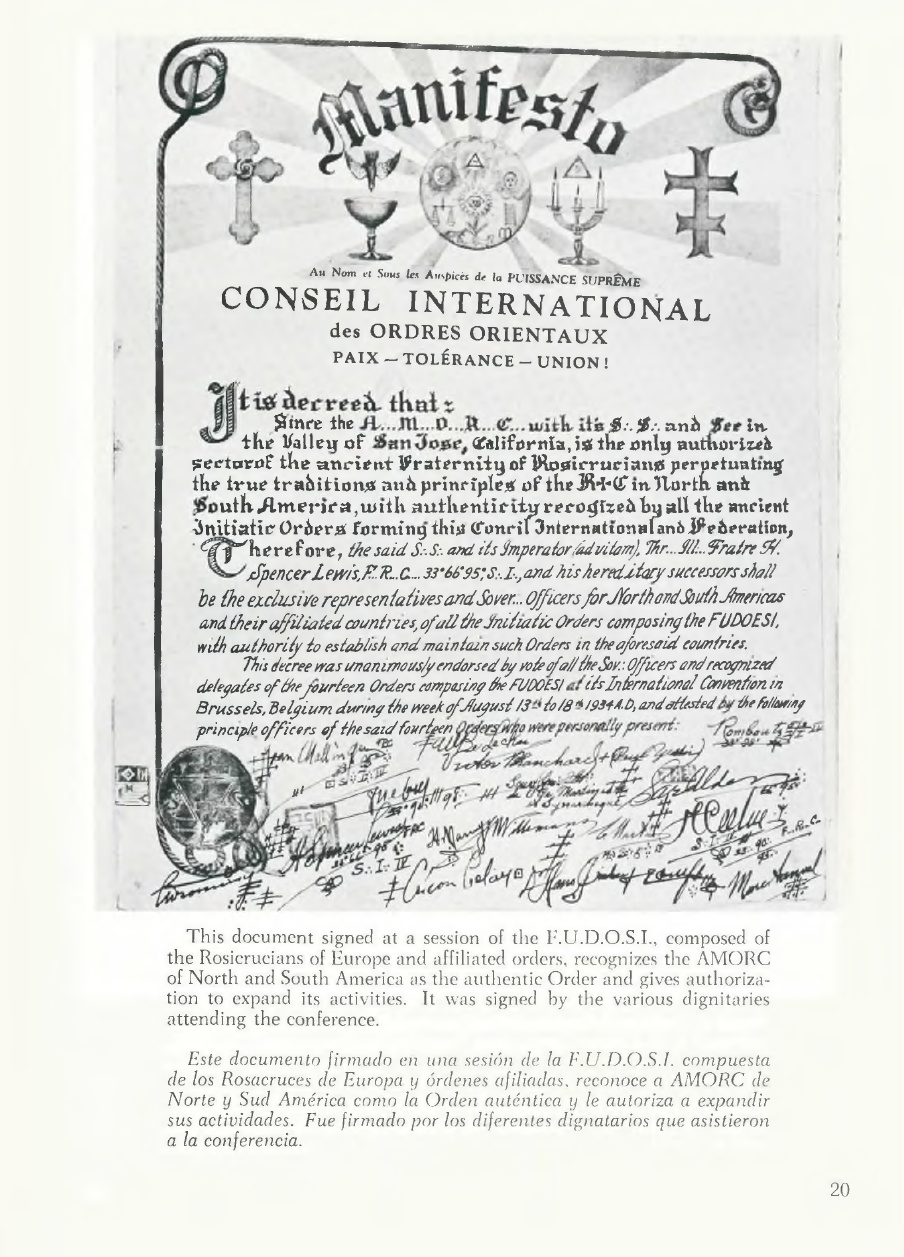 Manifesto
Au Nom et Sous les Auspices de la PUISSANCE SUPRÊME
CONSEIL INTERNATIONAL
des ORDRES ORIENTAUX
PAIX — TOLÉRANCE — UNION !
It is decreed that :
Since the A...M...O...R...C... with its S.·. S.·. and See in
the Valley of San Jose, California, is the only authorized
sector of the ancient Fraternity of Rosicrucians perpetuating
the true traditions and principles of the R+C in North and
South America, with authenticity recogized by all the ancient
Initiatic Orders forming this Concil International and Federation,
Therefore, the said S.·.S.·. and its Imperator (ad vitam), Thr... Ill... Fratre H.
Spencer Lewis, F.R...C... 33°66°95° S.·.I.·., and his hereditary successors shall
be the exclusive representatives and Sover... Officers for North and South Americas
and their affiliated countries, of all the Initiatic Orders composing the FUDOESI,
with authority to establish and maintain such Orders in the aforesaid countries.
This decree was unanimously endorsed by vote of all the Sov.·. Officers and recognized
delegates of the fourteen Orders composing the FUDOESI at its International Convention in
Brussels, Belgium during the week of August 13th to 18th 1934 A.D, and attested by the following
principle officers of the said fourteen Orders who were personally present:
Jean Mallinger
Victor Blanchard
H Spencer Lewis
S.·.I.·.IV
This document signed at a session of the F.U.D.O.S.I., composed of
the Rosicrucians of Europe and affiliated orders, recognizes the AMORC
of North and South America as the authentic Order and gives authoriza-
tion to expand its activities. It was signed by the various dignitaries
attending the conference.
Este documento firmado en una sesión de la F.U.D.O.S.I. compuesta
de los Rosacruces de Europa y órdenes afiliadas, reconoce a AMORC de
Norte y Sud América como la Orden auténtica y le autoriza a expandir
sus actividades. Fue firmado por los diferentes dignatarios que asistieron
a la conferencia.
20